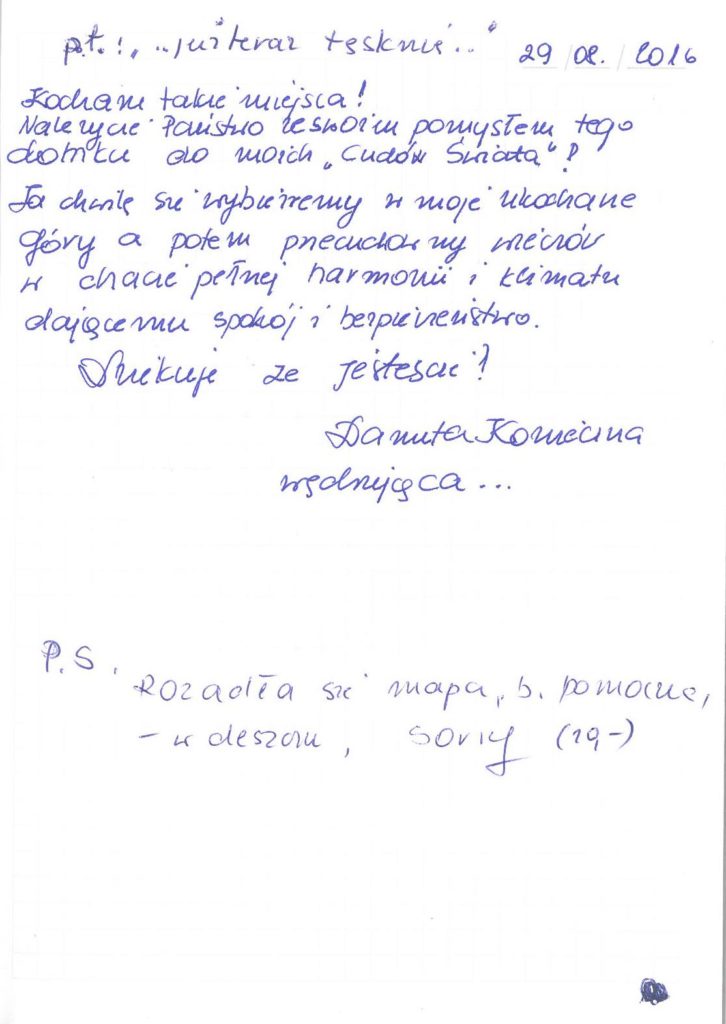 pt.: „już teraz tęsknię.." 29/08./2016
Kocham takie miejsca!
Należycie Państwo ze swoim pomysłem tego
domku do moich „Cudów Świata"!
Za chwilę się wybierzemy w moje ukochane
góry a potem przecudowny wieczór
w chacie pełnej harmonii i klimatu
dającemu spokój i bezpieczeństwo.
Dziękuję ze jesteście!
Danuta
wędrująca...
P.S.
Rozadła się mapa, b. pomocna,
– w deszczu, sorry (19,-)